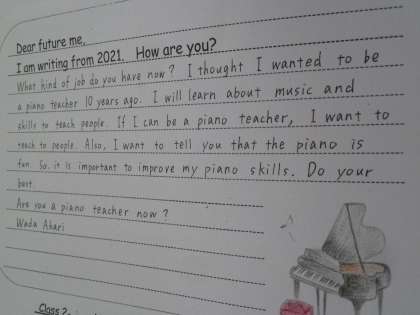 Dear future me,
I am writing from 2021. How are you?
What kind of job do you have now? I thought I wanted to be
a piano teacher 10 years ago. I will learn about music and
skills to teach people. If I can be a piano teacher, I want to
teach to people. Also, I want to tell you that the piano is
fun. So, it is important to improve my piano skills. Do your
best.
Are you a piano teacher now?
Wada Akari
Class 2